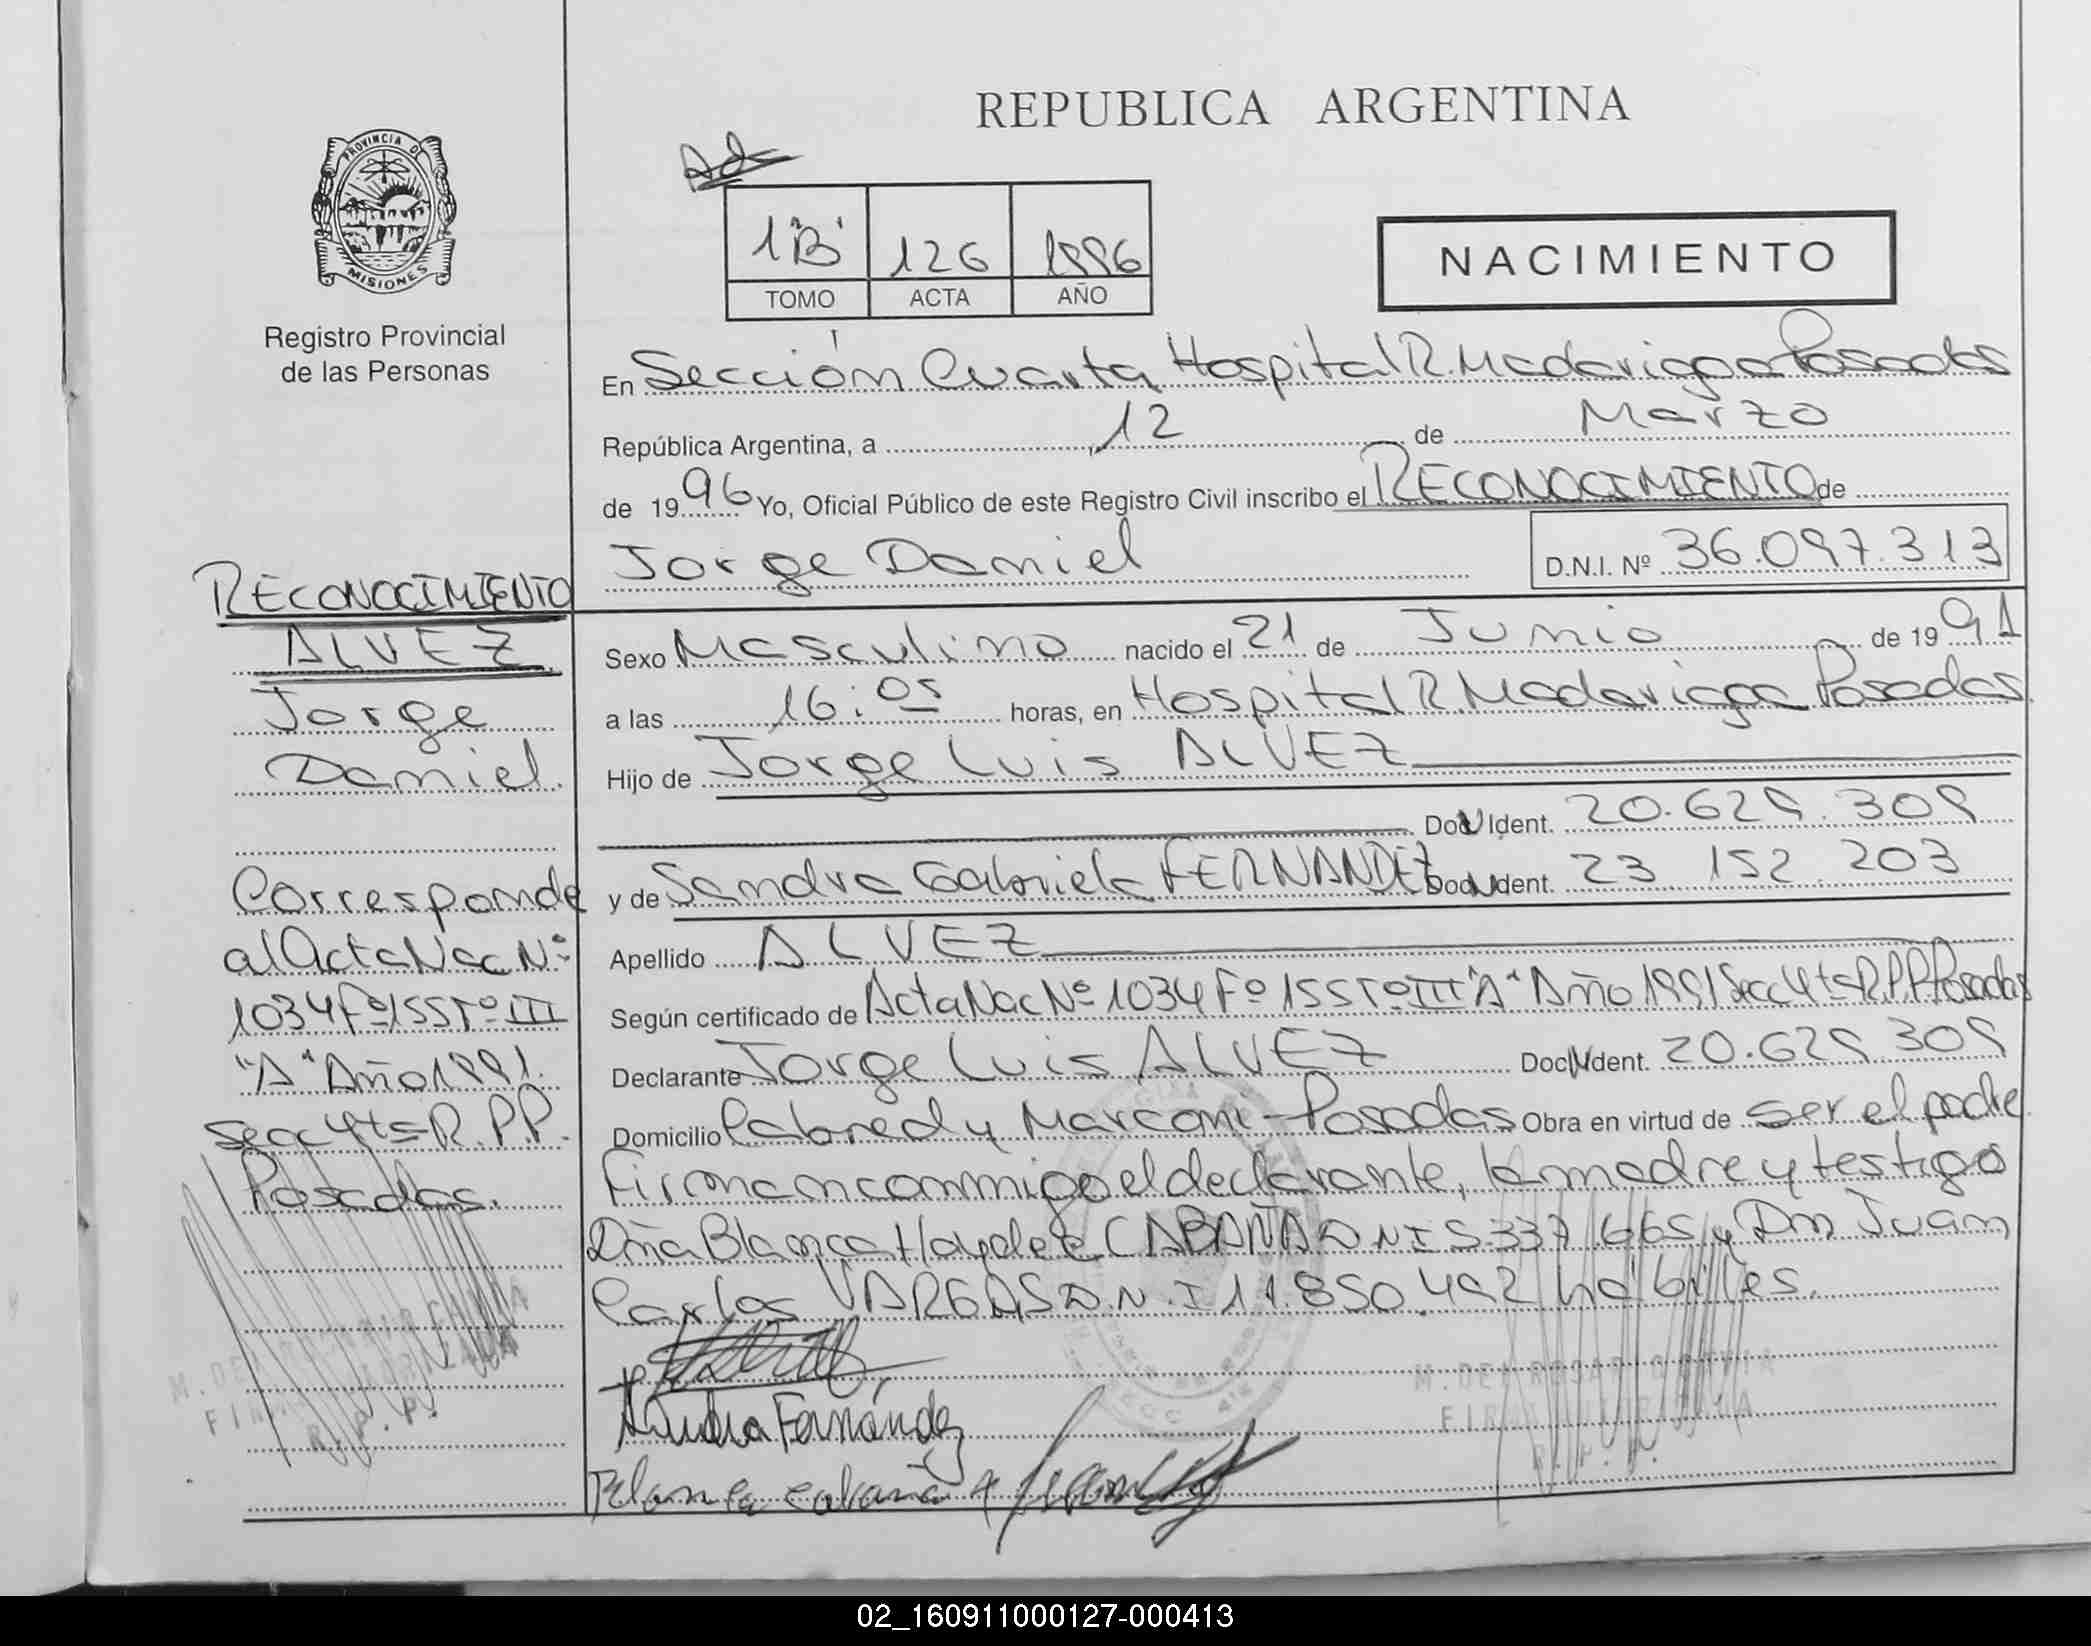 REPUBLICA ARGENTINA
PROVINCIA DE
MISIONES
Registro Provincial
de las Personas
1"B" 126 1996
TOMO ACTA AÑO
NACIMIENTO
En Sección Cuarta Hospital R. Madariaga Posadas
República Argentina, a 12 de Marzo
de 1996 Yo, Oficial Público de este Registro Civil inscribo el RECONOCIMIENTO de
Jorge Daniel D.N.I. Nº 36.097.313
RECONOCIMIENTO
ALVEZ
Jorge
Daniel.
Corresponde
al Acta Nac Nº
1034 Fº 155 Tº III
"A" Año 1991.
Secc 4ta R.P.P.
Posadas.
Sexo Masculino nacido el 21 de Junio de 1991
a las 16:05 horas, en Hospital R. Madariaga Posadas.
Hijo de Jorge Luis ALVEZ
Doc. Ident. 20.629.309
y de Sandra Gabriela FERNANDEZ Doc. Ident. 23 152 203
Apellido ALVEZ
Según certificado de Acta Nac Nº 1034 Fº 155 Tº III "A" Año 1991 Secc 4ta R.P.P Posadas
Declarante Jorge Luis ALVEZ Doc. Ident. 20.629 309
Domicilio Cabred y Marconi - Posadas Obra en virtud de ser el padre.
Firman conmigo el declarante, la madre y testigo
Dña Blanca Haydeé CABAÑA D N I 5.337.665 y Dn Juan
Carlos VARGAS D.N.I 11.850.492 hábiles.
Sandra Fernández
Blanca cabaña
M. DEL ROSARIO
FIRMA AUTORIZADA
R.P.P.
M. DEL ROSARIO
FIRMA AUTORIZADA
R.P.P.
02_160911000127-000413